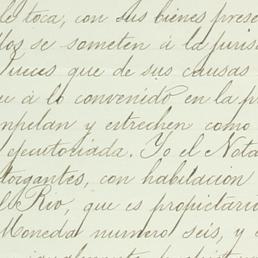 le toca, con sus bienes prese
llos se someten á la juris
Jueces que de sus causas
á lo convenido en la p
mpelan y estrechen como
ejecutoriada. Yo el Nota
torgantes, con habitacion
l Rio, que es propietari
Moneda numero seis, y